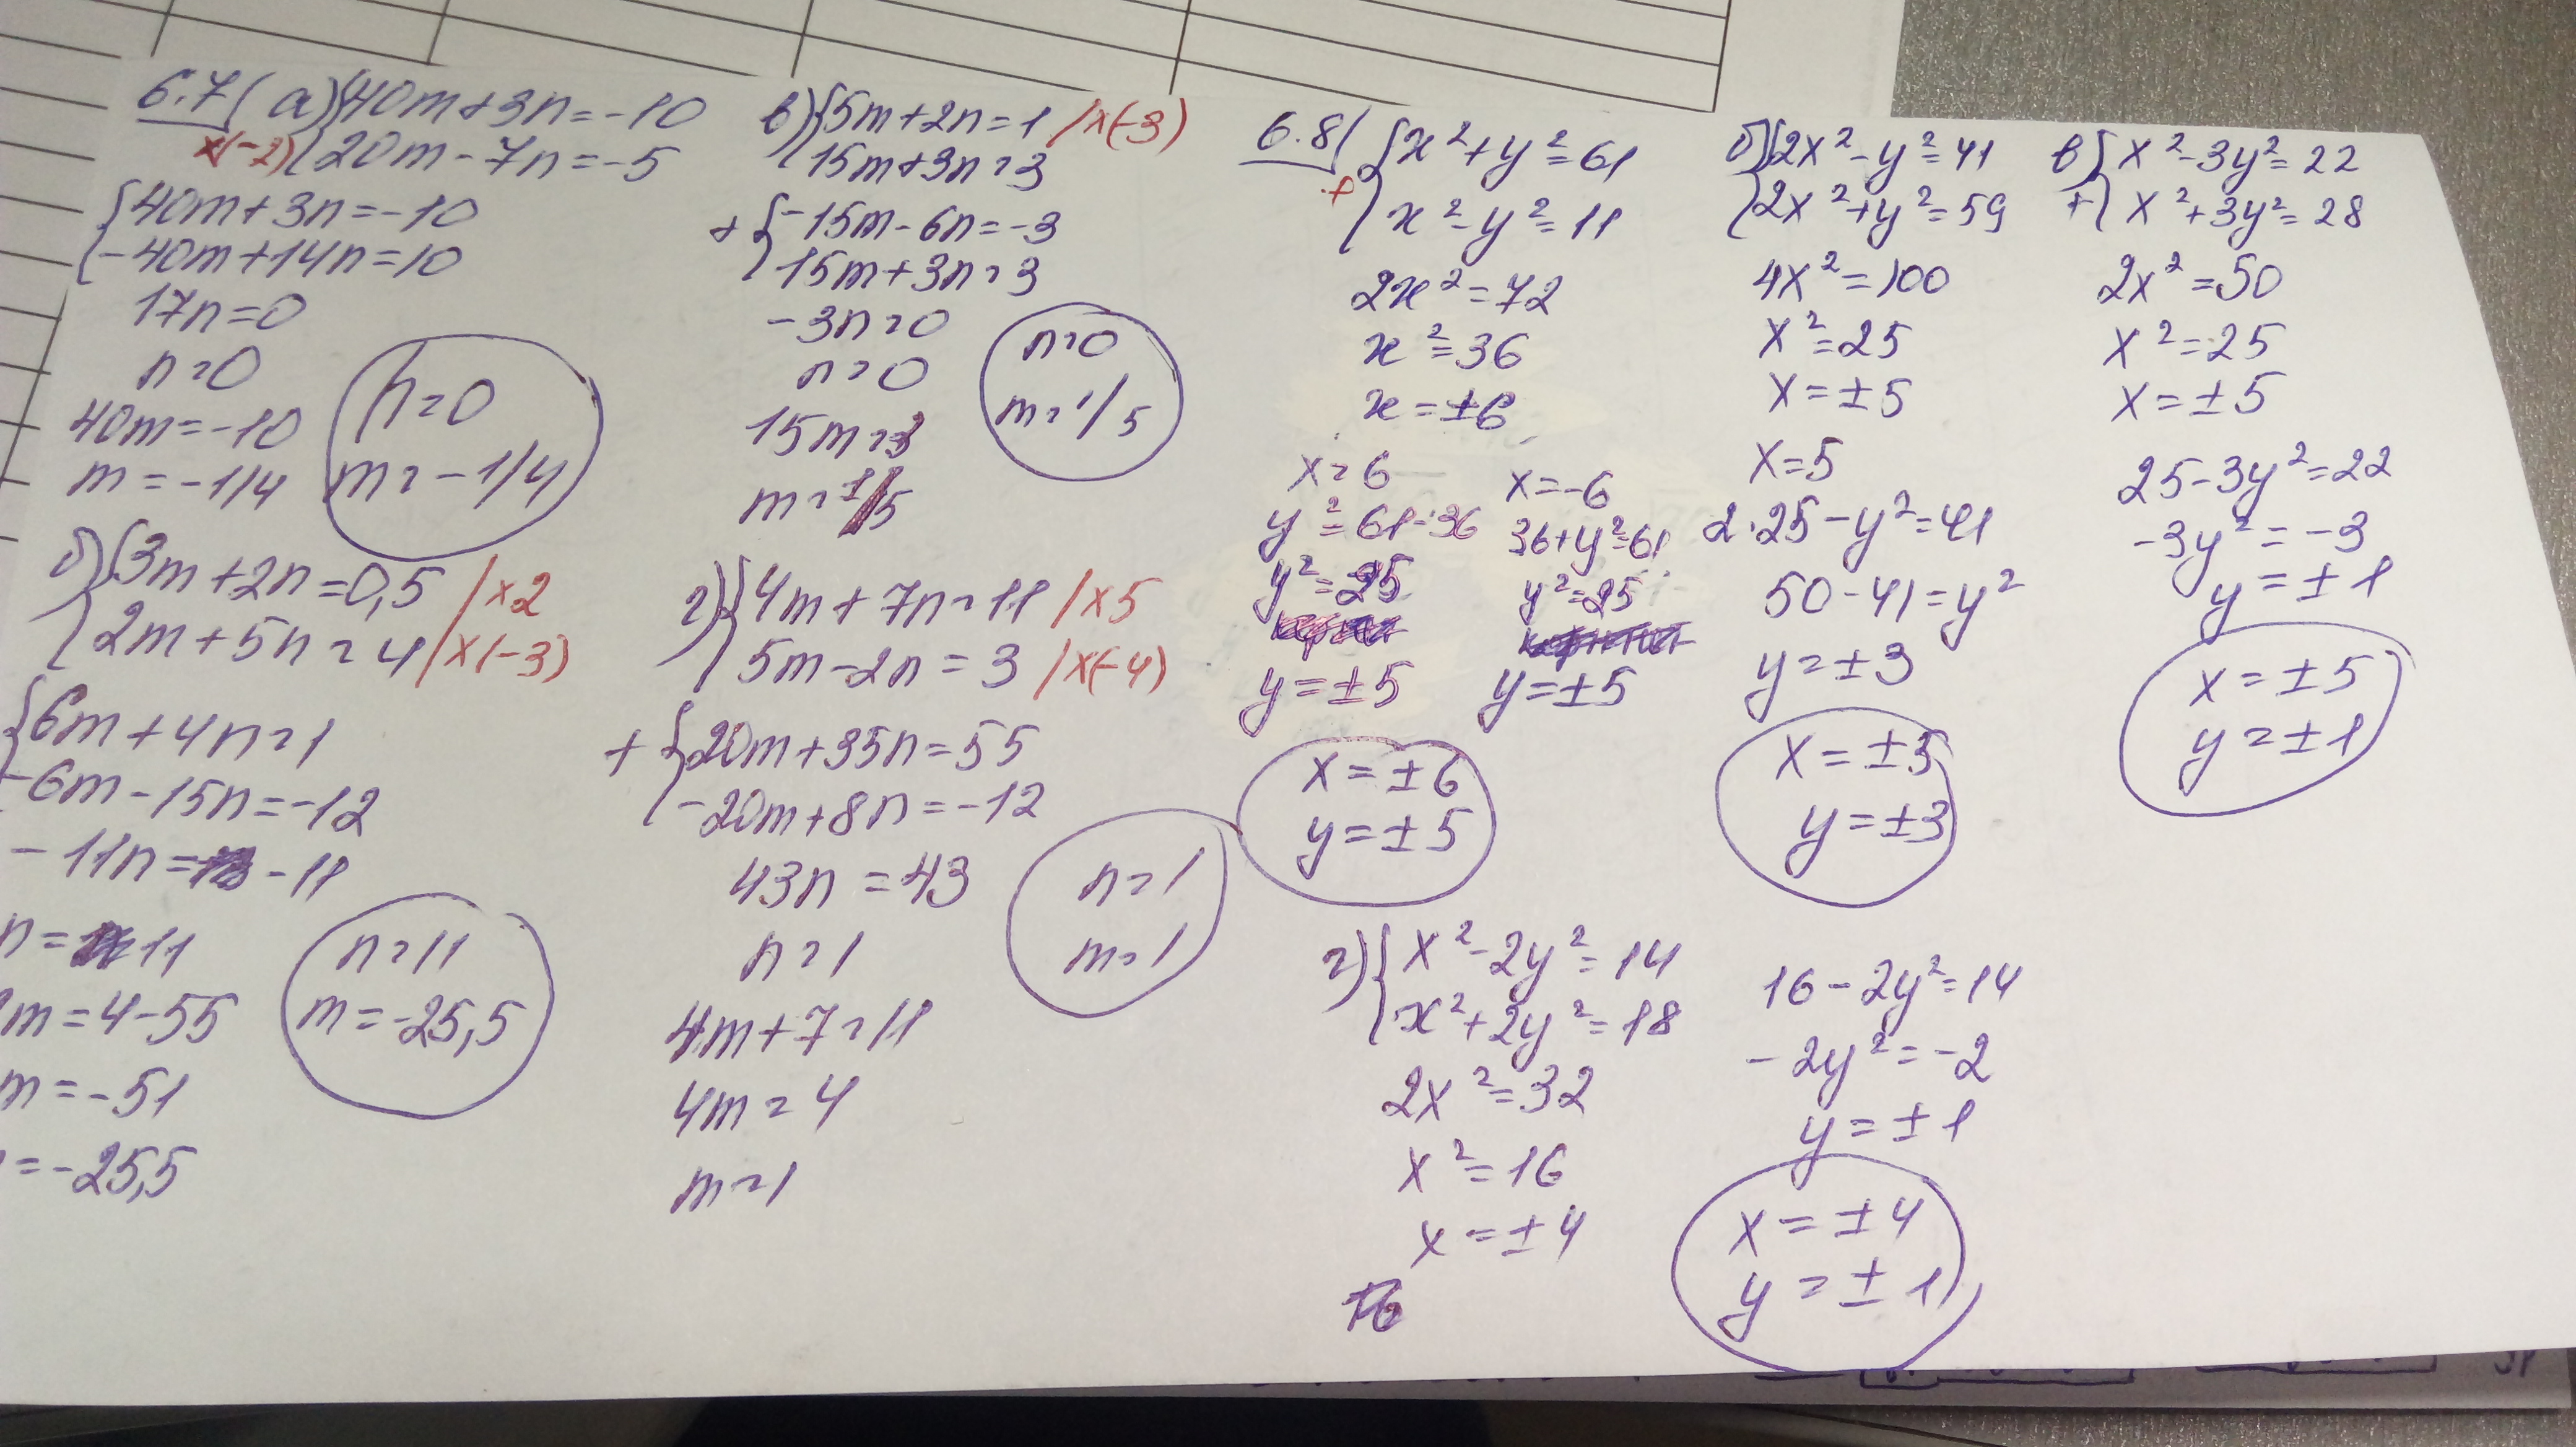 6.7( а) {40m+3n=-10
x(-2) {20m-7n=-5
{40m+3n=-10
{-40m+14n=10
17n=0
n=0
40m=-10
m=-1/4
n=0
m=-1/4
б) {3m+2n=0,5 /x2
{2m+5n=4 /x(-3)
{6m+4n=1
-6m-15n=-12
-11n= -11
n= 11
m=4-55
m=-51
=-25,5
n=11
m=-25,5
в) {5m+2n=1 /x(-3)
{15m+3n=3
+ {-15m-6n=-3
{15m+3n=3
-3n=0
n=0
15m=3
m=1/5
n=0
m=1/5
г) {4m+7n=11 /x5
{5m-2n=3 /x(-4)
+ {20m+35n=55
{-20m+8n=-12
43n=43
n=1
4m+7=11
4m=4
m=1
n=1
m=1
6.8( {x²+y²=61
+ {x²-y²=11
2x²=72
x²=36
x=±6
x=6
y²=61-36
y²=25
y=±5
x=-6
36+y²=61
y²=25
y=±5
x=±6
y=±5
б) {2x²-y²=41
{2x²+y²=59
4x²=100
x²=25
x=±5
x=5
2·25-y²=41
50-41=y²
y=±3
x=±5
y=±3
в) {x²-3y²=22
+ {x²+3y²=28
2x²=50
x²=25
x=±5
25-3y²=22
-3y²=-3
y=±1
x=±5
y=±1
г) {x²-2y²=14
{x²+2y²=18
2x²=32
x²=16
x=±4
16
16-2y²=14
-2y²=-2
y=±1
x=±4
y=±1